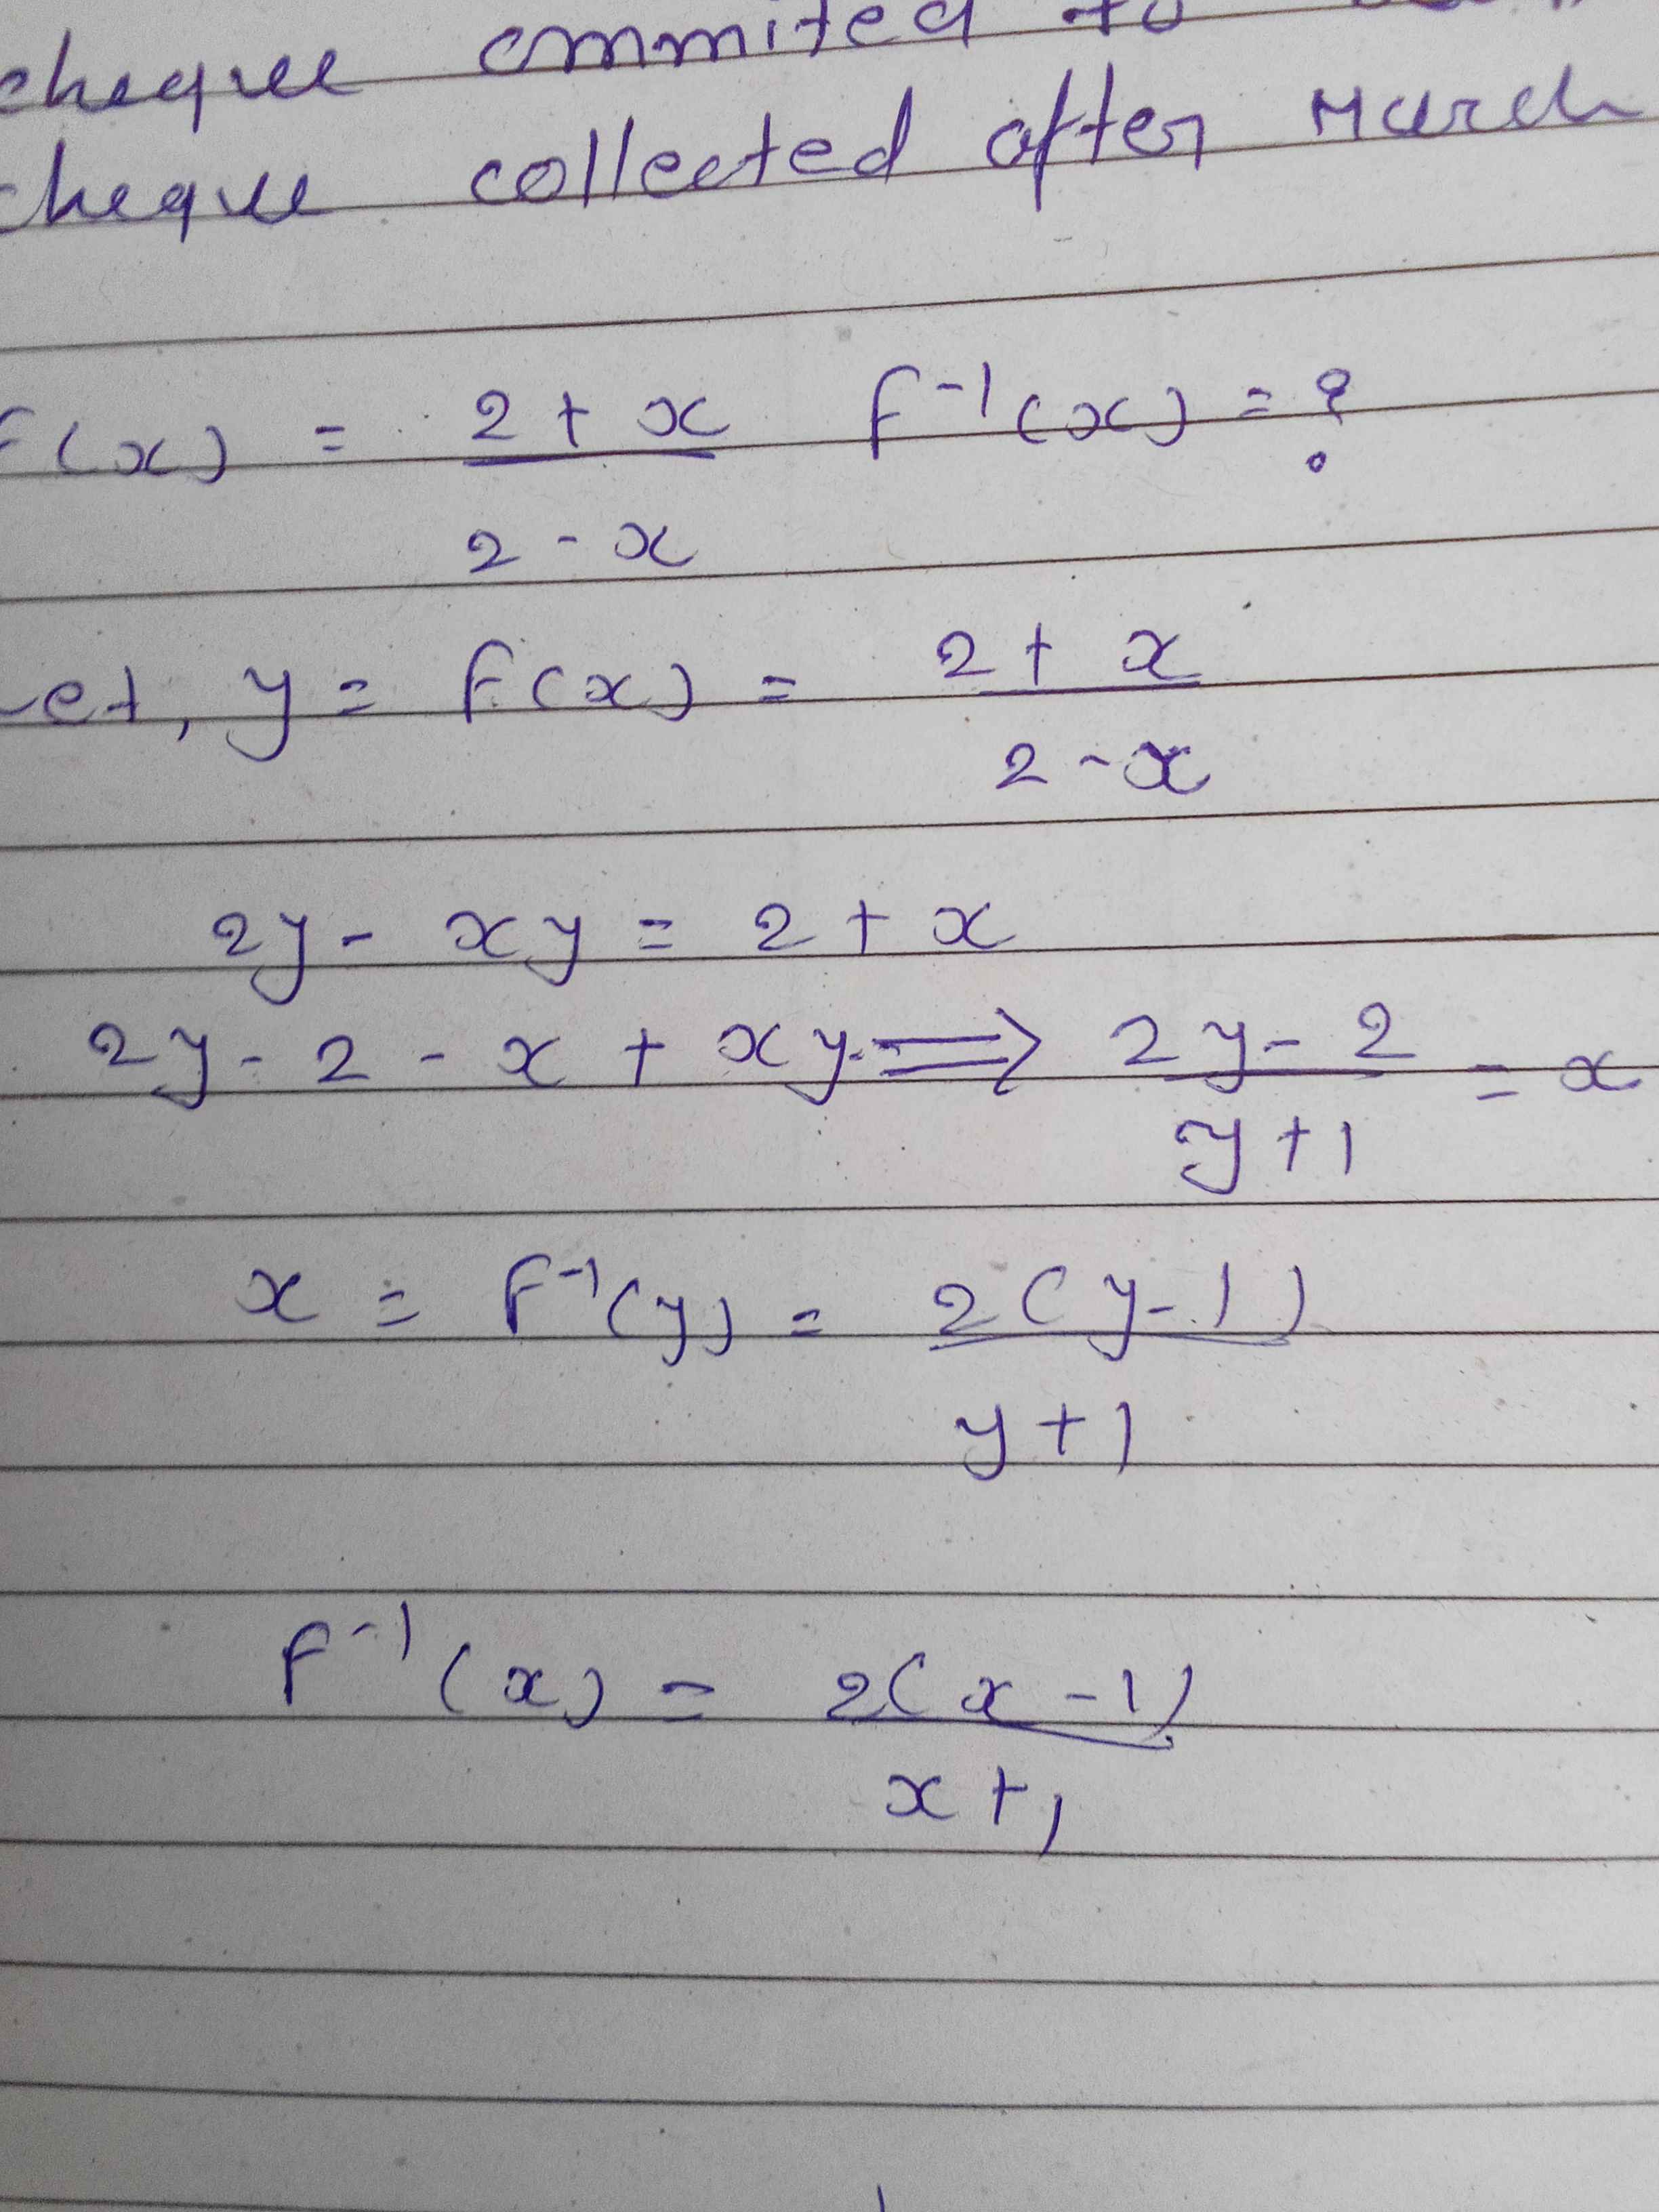 cheque ommited to
cheque collected after March
F(x) = 2 + x / 2 - x F⁻¹(x) = ?
Let, y = F(x) = 2 + x / 2 - x
2y - xy = 2 + x
2y - 2 - x + xy ⇒ 2y - 2 / y + 1 = x
x = F⁻¹(y) = 2(y - 1) / y + 1
F⁻¹(x) = 2(x - 1) / x + 1